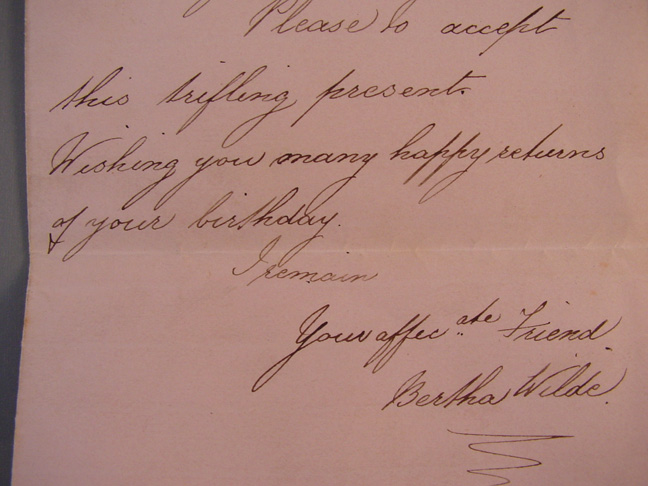 Please to accept
this trifling present.
Wishing you many happy returns
of your birthday.
I remain
Your affec ate Friend
Bertha Wilde.